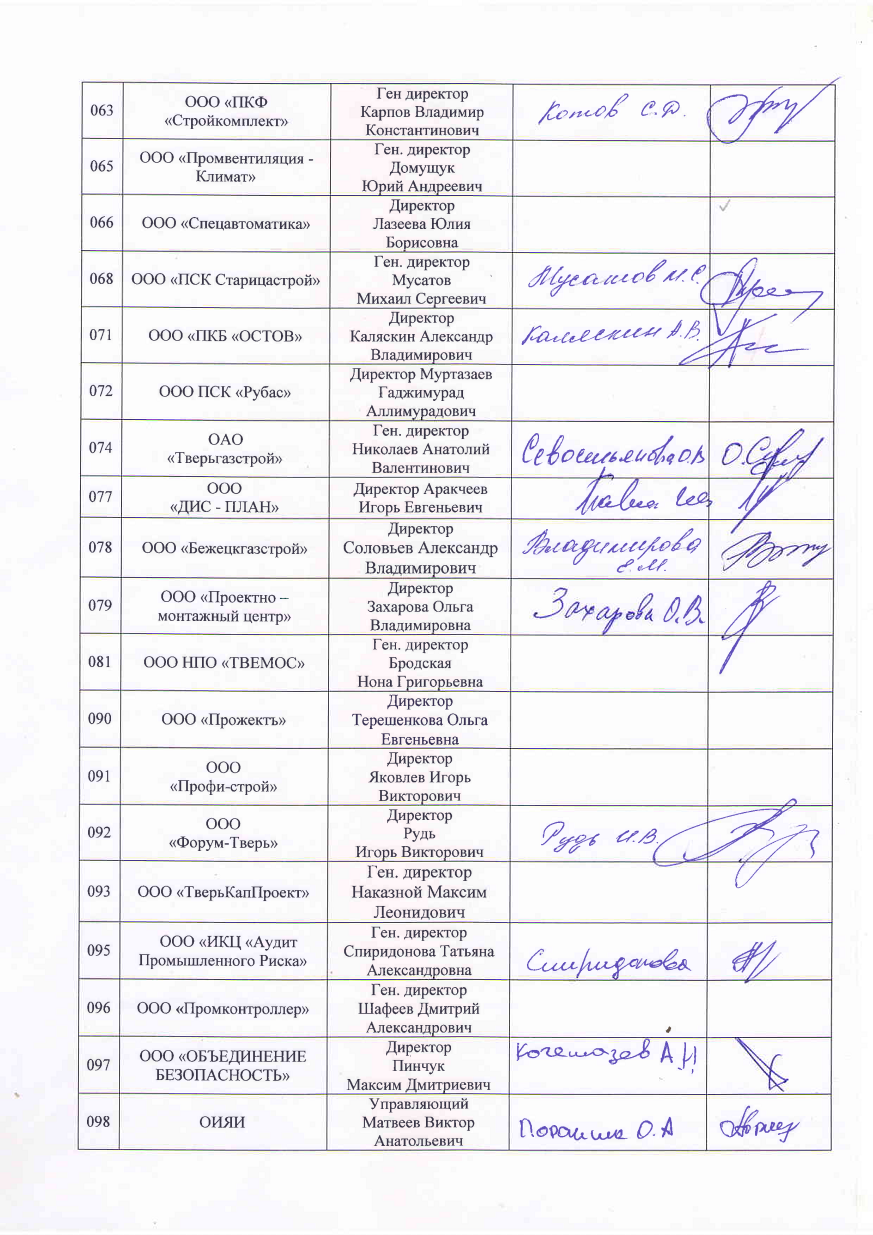 063
ООО «ПКФ
«Стройкомплект»
Ген директор
Карпов Владимир
Константинович
Котов С.Д.
065
ООО «Промвентиляция -
Климат»
Ген. директор
Домущук
Юрий Андреевич
066
ООО «Спецавтоматика»
Директор
Лазеева Юлия
Борисовна
068
ООО «ПСК Старицастрой»
Ген. директор
Мусатов
Михаил Сергеевич
Мусатов М.С.
071
ООО «ПКБ «ОСТОВ»
Директор
Каляскин Александр
Владимирович
Каляскин А.В.
072
ООО ПСК «Рубас»
Директор Муртазаев
Гаджимурад
Аллимурадович
074
ОАО
«Тверьгазстрой»
Ген. директор
Николаев Анатолий
Валентинович
077
ООО
«ДИС - ПЛАН»
Директор Аракчеев
Игорь Евгеньевич
078
ООО «Бежецкгазстрой»
Директор
Соловьев Александр
Владимирович
Владимирова
Е.М.
079
ООО «Проектно –
монтажный центр»
Директор
Захарова Ольга
Владимировна
Захарова О.В.
081
ООО НПО «ТВЕМОС»
Ген. директор
Бродская
Нона Григорьевна
090
ООО «Прожектъ»
Директор
Терешенкова Ольга
Евгеньевна
091
ООО
«Профи-строй»
Директор
Яковлев Игорь
Викторович
092
ООО
«Форум-Тверь»
Директор
Рудь
Игорь Викторович
Рудь И.В.
093
ООО «ТверьКапПроект»
Ген. директор
Наказной Максим
Леонидович
095
ООО «ИКЦ «Аудит
Промышленного Риска»
Ген. директор
Спиридонова Татьяна
Александровна
Спиридонова
096
ООО «Промконтроллер»
Ген. директор
Шафеев Дмитрий
Александрович
097
ООО «ОБЪЕДИНЕНИЕ
БЕЗОПАСНОСТЬ»
Директор
Пинчук
Максим Дмитриевич
098
ОИЯИ
Управляющий
Матвеев Виктор
Анатольевич
О.А